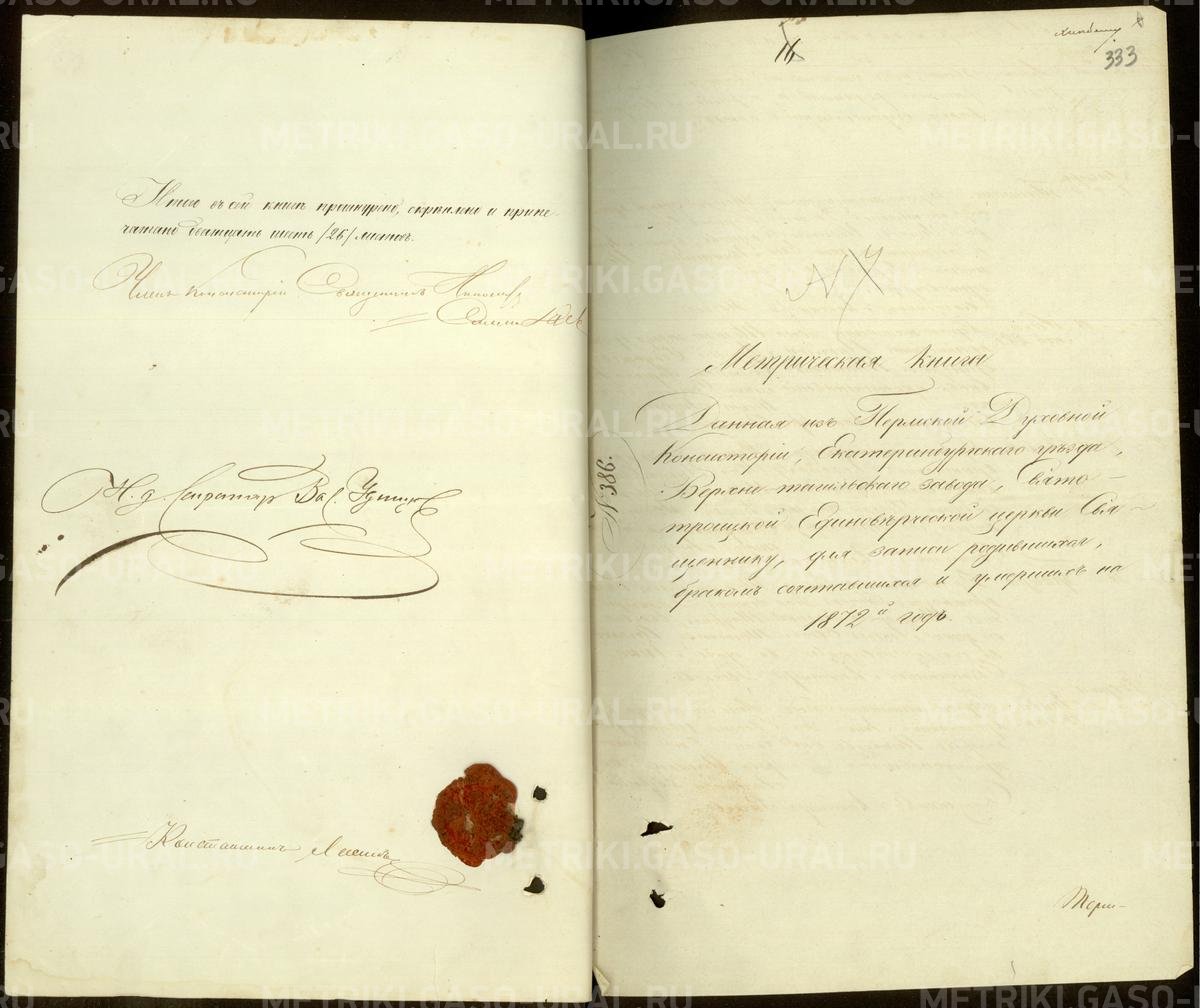 Итого въ сей книгѣ прошнурено, скрѣплено и припе-
чатано двадцать шесть /26/ листовъ.
Членъ Консисторіи Священникъ Николай
И. д. Секретаря Вас. Удинцов
Константинъ
16
333
№ 386.
Метрическая Книга
Данная изъ Пермской Духовной
Консисторіи, Екатеринбургскаго уѣзда,
Верхне тагильскаго завода, Свято-
троицкой Единовѣрческой церкви Свя-
щеннику, для записи родившихся,
бракомъ сочетавшихся и умершихъ на
1872й годъ.
METRIKI.GASO-URAL.RU